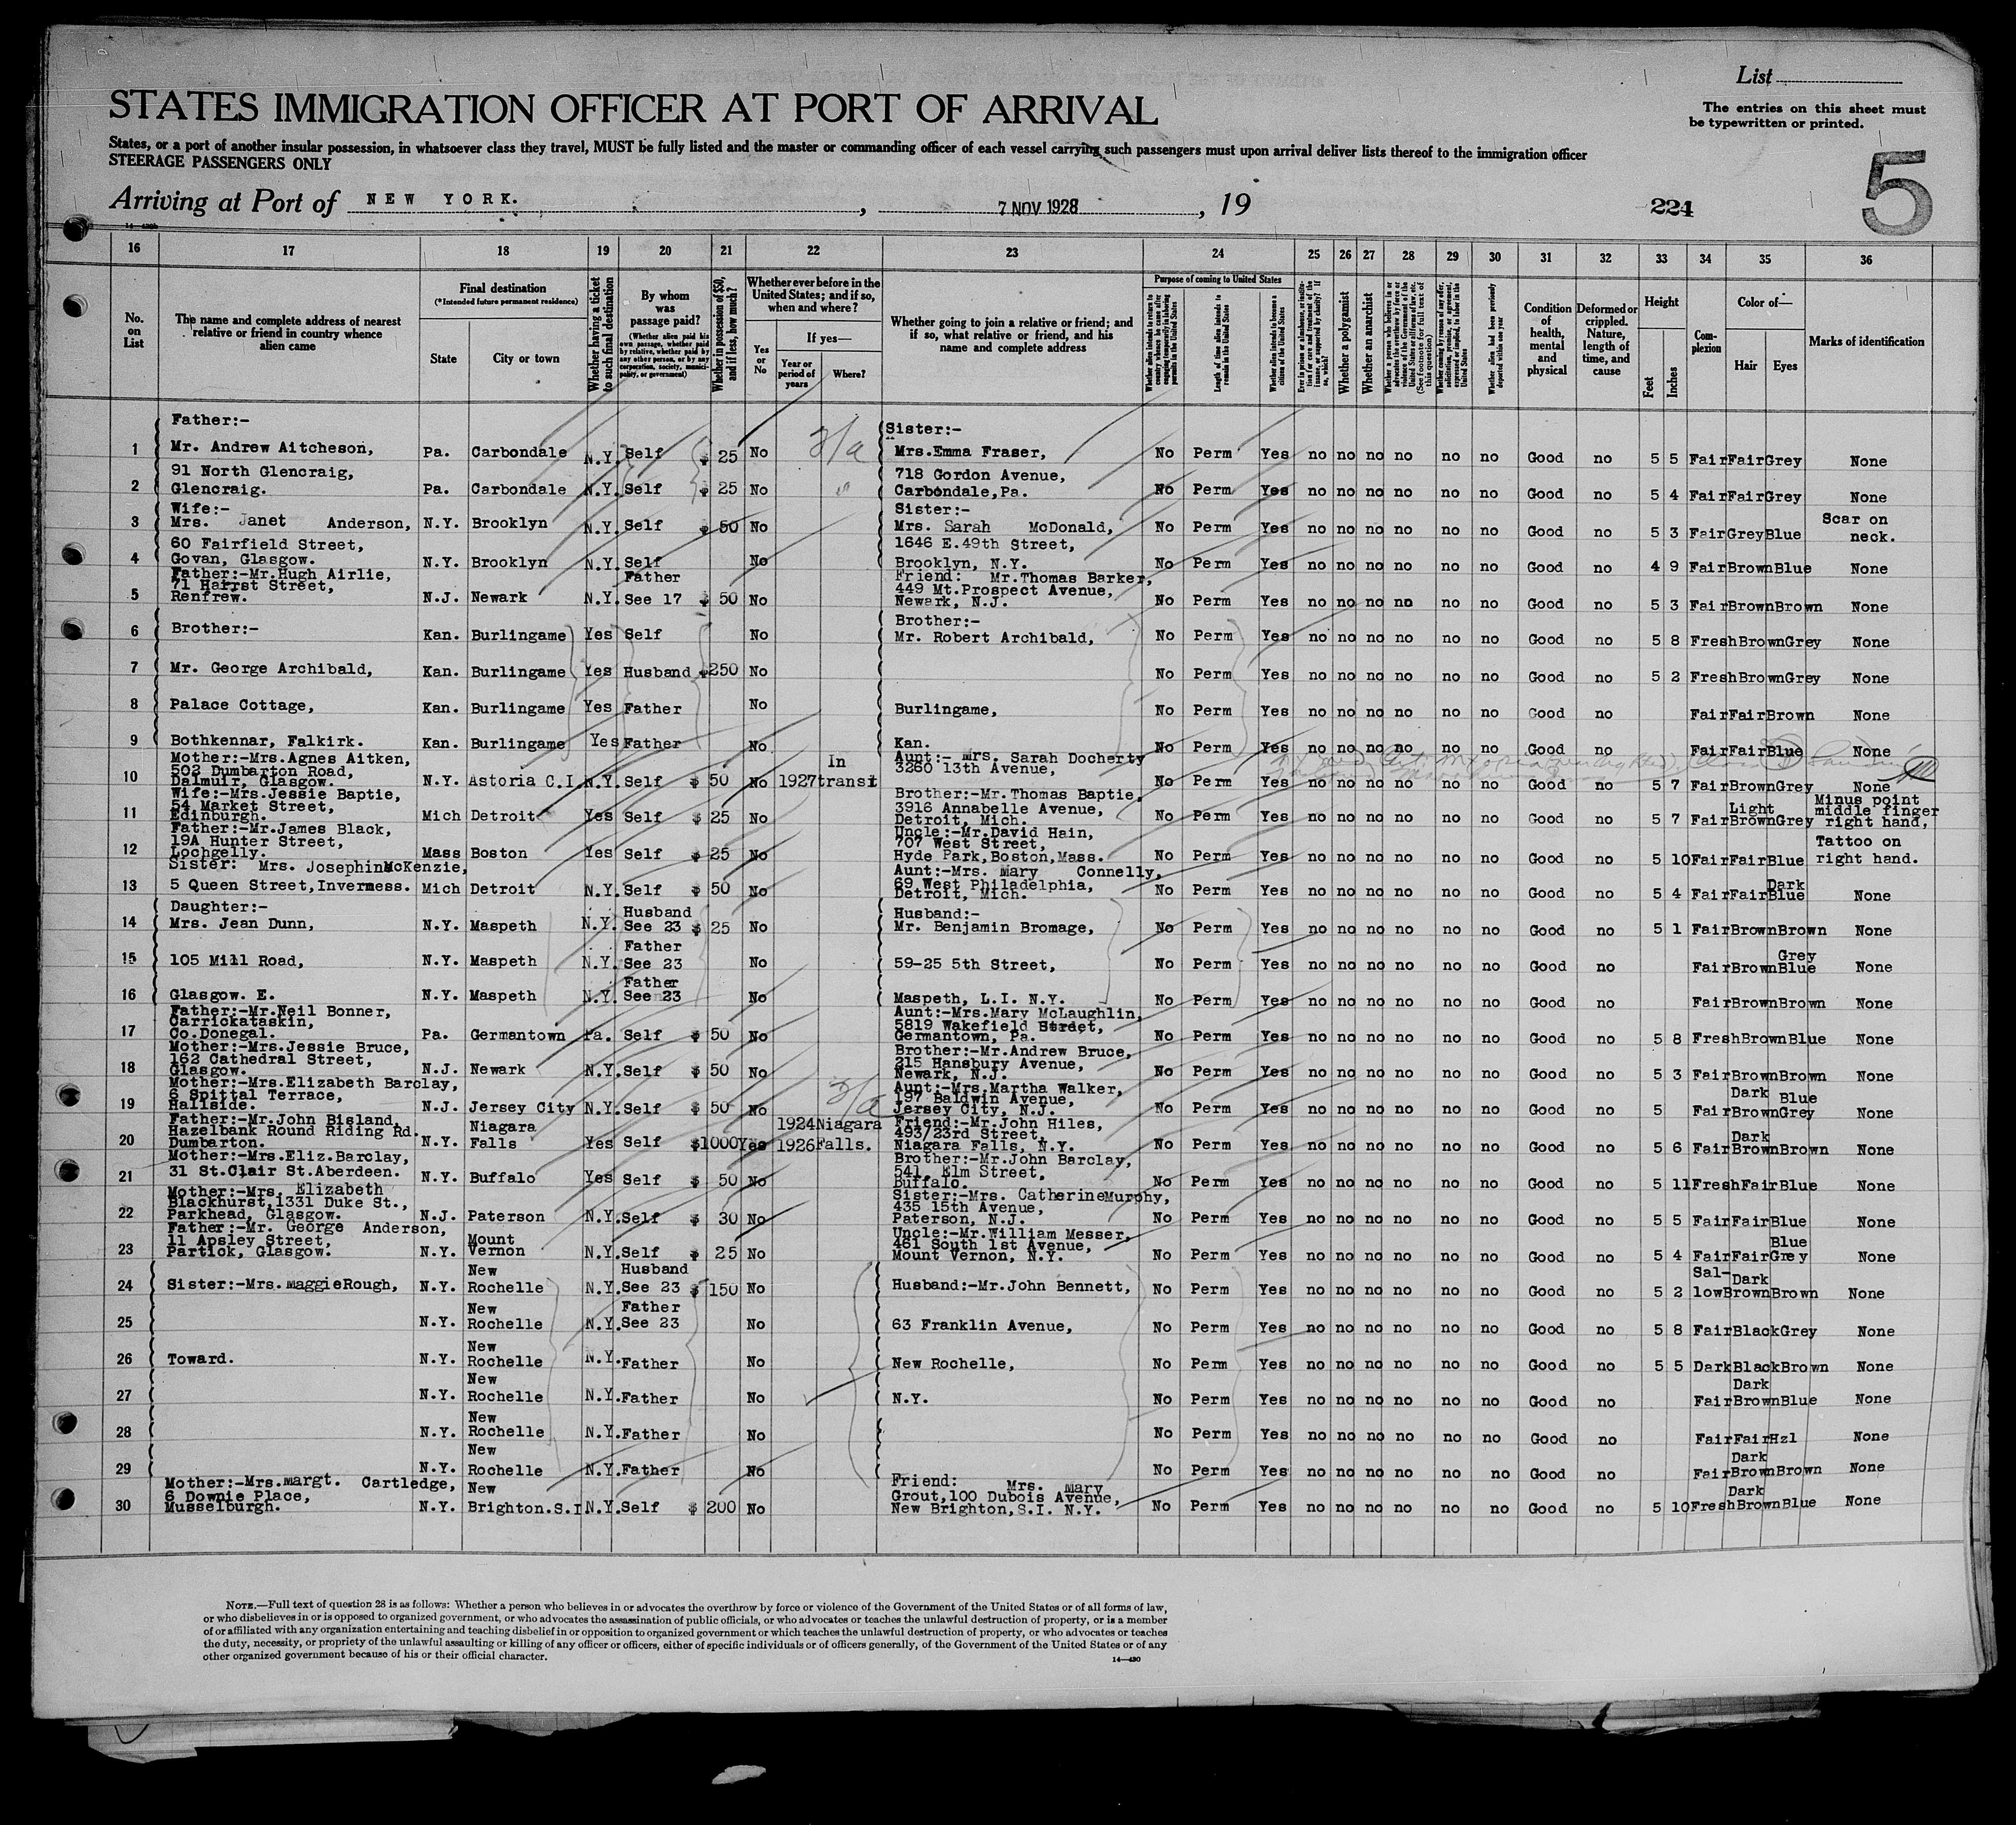 List
STATES IMMIGRATION OFFICER AT PORT OF ARRIVAL
The entries on this sheet must
be typewritten or printed.
States, or a port of another insular possession, in whatsoever class they travel, MUST be fully listed and the master or commanding officer of each vessel carrying such passengers must upon arrival deliver lists thereof to the immigration officer
STEERAGE PASSENGERS ONLY
5
Arriving at Port of NEW YORK. , 7 NOV 1928 , 19 224
16 17 18 19 20 21 22 23 24 25 26 27 28 29 30 31 32 33 34 35 36
No. on List
The name and complete address of nearest relative or friend in country whence alien came
Final destination
(*Intended future permanent residence)
State
City or town
Whether having a ticket to such final destination
By whom was passage paid?
(Whether alien paid his own passage, whether paid by relative, whether paid by any other person, or by any corporation, society, municipality, or government)
Whether in possession of $50, and if less, how much?
Whether ever before in the United States; and if so, when and where?
Yes or No
If yes—
Year or period of years
Where?
Whether going to join a relative or friend; and if so, what relative or friend, and his name and complete address
Purpose of coming to United States
Length of time alien intends to remain in the United States
Whether alien intends to become a citizen of the United States
Whether a polygamist
Whether an anarchist
Condition of health, mental and physical
Deformed or crippled. Nature, length of time, and cause
Height
Feet
Inches
Complexion
Color of—
Hair
Eyes
Marks of identification
Father:- Sister:-
1 Mr. Andrew Aitcheson, Pa. Carbondale N.Y. Self $ 25 No Mrs.Emma Fraser, No Perm Yes no no no no no no Good no 5 5 Fair Fair Grey None
91 North Glencraig, 718 Gordon Avenue,
2 Glencraig. Pa. Carbondale N.Y. Self $ 25 No Carbondale,Pa. No Perm Yes no no no no no no Good no 5 4 Fair Fair Grey None
Wife:- Sister:- Scar on
3 Mrs. Janet Anderson, N.Y. Brooklyn N.Y. Self $ 50 No Mrs. Sarah McDonald, No Perm Yes no no no no no no Good no 5 3 Fair Grey Blue neck.
60 Fairfield Street, 1646 E.49th Street,
4 Govan, Glasgow. N.Y. Brooklyn N.Y. Self No Brooklyn, N.Y. No Perm Yes no no no no no no Good no 4 9 Fair Brown Blue None
Father:-Mr.Hugh Airlie, Father Friend: Mr.Thomas Barker,
71 Hairst Street, 449 Mt.Prospect Avenue,
5 Renfrew. N.J. Newark N.Y. See 17 $ 50 No Newark, N.J. No Perm Yes no no no no no no Good no 5 3 Fair Brown Brown None
Brother:-
6 Brother:- Kan. Burlingame Yes Self No Mr. Robert Archibald, No Perm Yes no no no no no no Good no 5 8 Fresh Brown Grey None
7 Mr. George Archibald, Kan. Burlingame Yes Husband $250 No No Perm Yes no no no no no no Good no 5 2 Fresh Brown Grey None
8 Palace Cottage, Kan. Burlingame Yes Father No Burlingame, No Perm Yes no no no no no no Good no Fair Fair Brown None
9 Bothkennar, Falkirk. Kan. Burlingame Yes Father No Kan. No Perm Yes no no no no no no Good no Fair Fair Blue None
Mother:-Mrs.Agnes Aitken, In Aunt:- Mrs. Sarah Docherty
502 Dumbarton Road, 3260 13th Avenue,
10 Dalmuir, Glasgow. N.Y. Astoria C.I. N.Y. Self $ 50 No 1927 transit No Perm Yes no no no no no no Good no 5 7 Fair Brown Grey None
Wife:-Mrs.Jessie Baptie, Brother:-Mr.Thomas Baptie, Minus point
54 Market Street, 3916 Annabelle Avenue, Light middle finger
11 Edinburgh. Mich Detroit Yes Self $ 25 No Detroit, Mich. No Perm Yes no no no no no no Good no 5 7 Fair Brown Grey right hand,
Father:-Mr.James Black, Uncle:-Mr.David Hain,
19A Hunter Street, 707 West Street, Tattoo on
12 Lochgelly. Mass Boston Yes Self $ 25 No Hyde Park,Boston,Mass. No Perm Yes no no no no no no Good no 5 10 Fair Fair Blue right hand.
Sister: Mrs. Josephine McKenzie, Aunt:-Mrs. Mary Connelly,
69 West Philadelphia, Dark
13 5 Queen Street,Inverness. Mich Detroit N.Y. Self $ 50 No Detroit, Mich. No Perm Yes no no no no no no Good no 5 4 Fair Fair Blue None
Daughter:- Husband Husband:-
14 Mrs. Jean Dunn, N.Y. Maspeth N.Y. See 23 $ 25 No Mr. Benjamin Bromage, No Perm Yes no no no no no no Good no 5 1 Fair Brown Brown None
Father Grey
15 105 Mill Road, N.Y. Maspeth N.Y. See 23 No 59-25 5th Street, No Perm Yes no no no no no no Good no Fair Brown Blue None
Father
16 Glasgow. E. N.Y. Maspeth N.Y. See 23 No Maspeth, L.I. N.Y. No Perm Yes no no no no no no Good no Fair Brown Brown None
Father:-Mr.Neil Bonner, Aunt:-Mrs.Mary McLaughlin,
Carrickataskin, 5819 Wakefield Street,
17 Co.Donegal. Pa. Germantown Pa. Self $ 50 No Germantown, Pa. No Perm Yes no no no no no no Good no 5 8 Fresh Brown Blue None
Mother:-Mrs.Jessie Bruce, Brother:-Mr.Andrew Bruce,
162 Cathedral Street, 215 Hansbury Avenue,
18 Glasgow. N.J. Newark N.Y. Self $ 50 No Newark, N.J. No Perm Yes no no no no no no Good no 5 3 Fair Brown Brown None
Mother:-Mrs.Elizabeth Barclay, Aunt:-Mrs.Martha Walker,
6 Spittal Terrace, 197 Baldwin Avenue, Dark Blue
19 Hallside. N.J. Jersey City N.Y. Self $ 50 No Jersey City, N.J. No Perm Yes no no no no no no Good no 5 Fair Brown Grey None
Father:-Mr.John Bisland, Niagara 1924 Niagara Friend:-Mr.John Hiles,
Hazelbank Round Riding Rd. 493/23rd Street, Dark
20 Dumbarton. N.Y. Falls Yes Self $1000 Yes 1926 Falls. Niagara Falls, N.Y. No Perm Yes no no no no no no Good no 5 6 Fair Brown Brown None
Mother:-Mrs.Eliz.Barclay, Brother:-Mr.John Barclay,
31 St.Clair St.Aberdeen. 541, Elm Street,
21 N.Y. Buffalo Yes Self $ 50 No Buffalo. No Perm Yes no no no no no no Good no 5 11 Fresh Fair Blue None
Mother:-Mrs. Elizabeth Sister:-Mrs. Catherine Murphy,
Blackhurst,1331 Duke St., 435 15th Avenue,
22 Parkhead, Glasgow. N.J. Paterson N.Y. Self $ 30 No Paterson, N.J. No Perm Yes no no no no no no Good no 5 5 Fair Fair Blue None
Father:-Mr. George Anderson, Uncle:-Mr.William Messer,
11 Apsley Street, Mount 461 South 1st Avenue, Blue
23 Partick, Glasgow. N.Y. Vernon N.Y. Self $ 25 No Mount Vernon, N.Y. No Perm Yes no no no no no no Good no 5 4 Fair Fair Grey None
New Husband Sal- Dark
24 Sister:-Mrs.Maggie Rough, N.Y. Rochelle N.Y. See 23 $ 150 No Husband:-Mr.John Bennett, No Perm Yes no no no no no no Good no 5 2 low Brown Brown None
New Father
25 N.Y. Rochelle N.Y. See 23 No 63 Franklin Avenue, No Perm Yes no no no no no no Good no 5 8 Fair Black Grey None
New
26 Toward. N.Y. Rochelle N.Y. Father No New Rochelle, No Perm Yes no no no no no no Good no 5 5 Dark Black Brown None
New Dark
27 N.Y. Rochelle N.Y. Father No N.Y. No Perm Yes no no no no no no Good no Fair Brown Blue None
New
28 N.Y. Rochelle N.Y. Father No No Perm Yes no no no no no no Good no Fair Fair Hzl None
New Dark
29 N.Y. Rochelle N.Y. Father No No Perm Yes no no no no no no Good no Fair Brown Brown None
Mother:-Mrs.Margt. Cartledge, Friend: Mrs. Mary
6 Downie Place, New Grout,100 Dubois Avenue, Dark
30 Musselburgh. N.Y. Brighton.S.I N.Y. Self $ 200 No New Brighton,S.I. N.Y. No Perm Yes no no no no no no Good no 5 10 Fresh Brown Blue None
NOTE.—Full text of question 28 is as follows: Whether a person who believes in or advocates the overthrow by force or violence of the Government of the United States or of all forms of law,
or who disbelieves in or is opposed to organized government, or who advocates the assassination of public officials, or who advocates or teaches the unlawful destruction of property, or is a member
of or affiliated with any organization entertaining and teaching disbelief in or opposition to organized government or which teaches the unlawful destruction of property, or who advocates or teaches
the duty, necessity, or propriety of the unlawful assaulting or killing of any officer or officers, either of specific individuals or of officers generally, of the Government of the United States or of any
other organized government because of his or their official character.
14—430